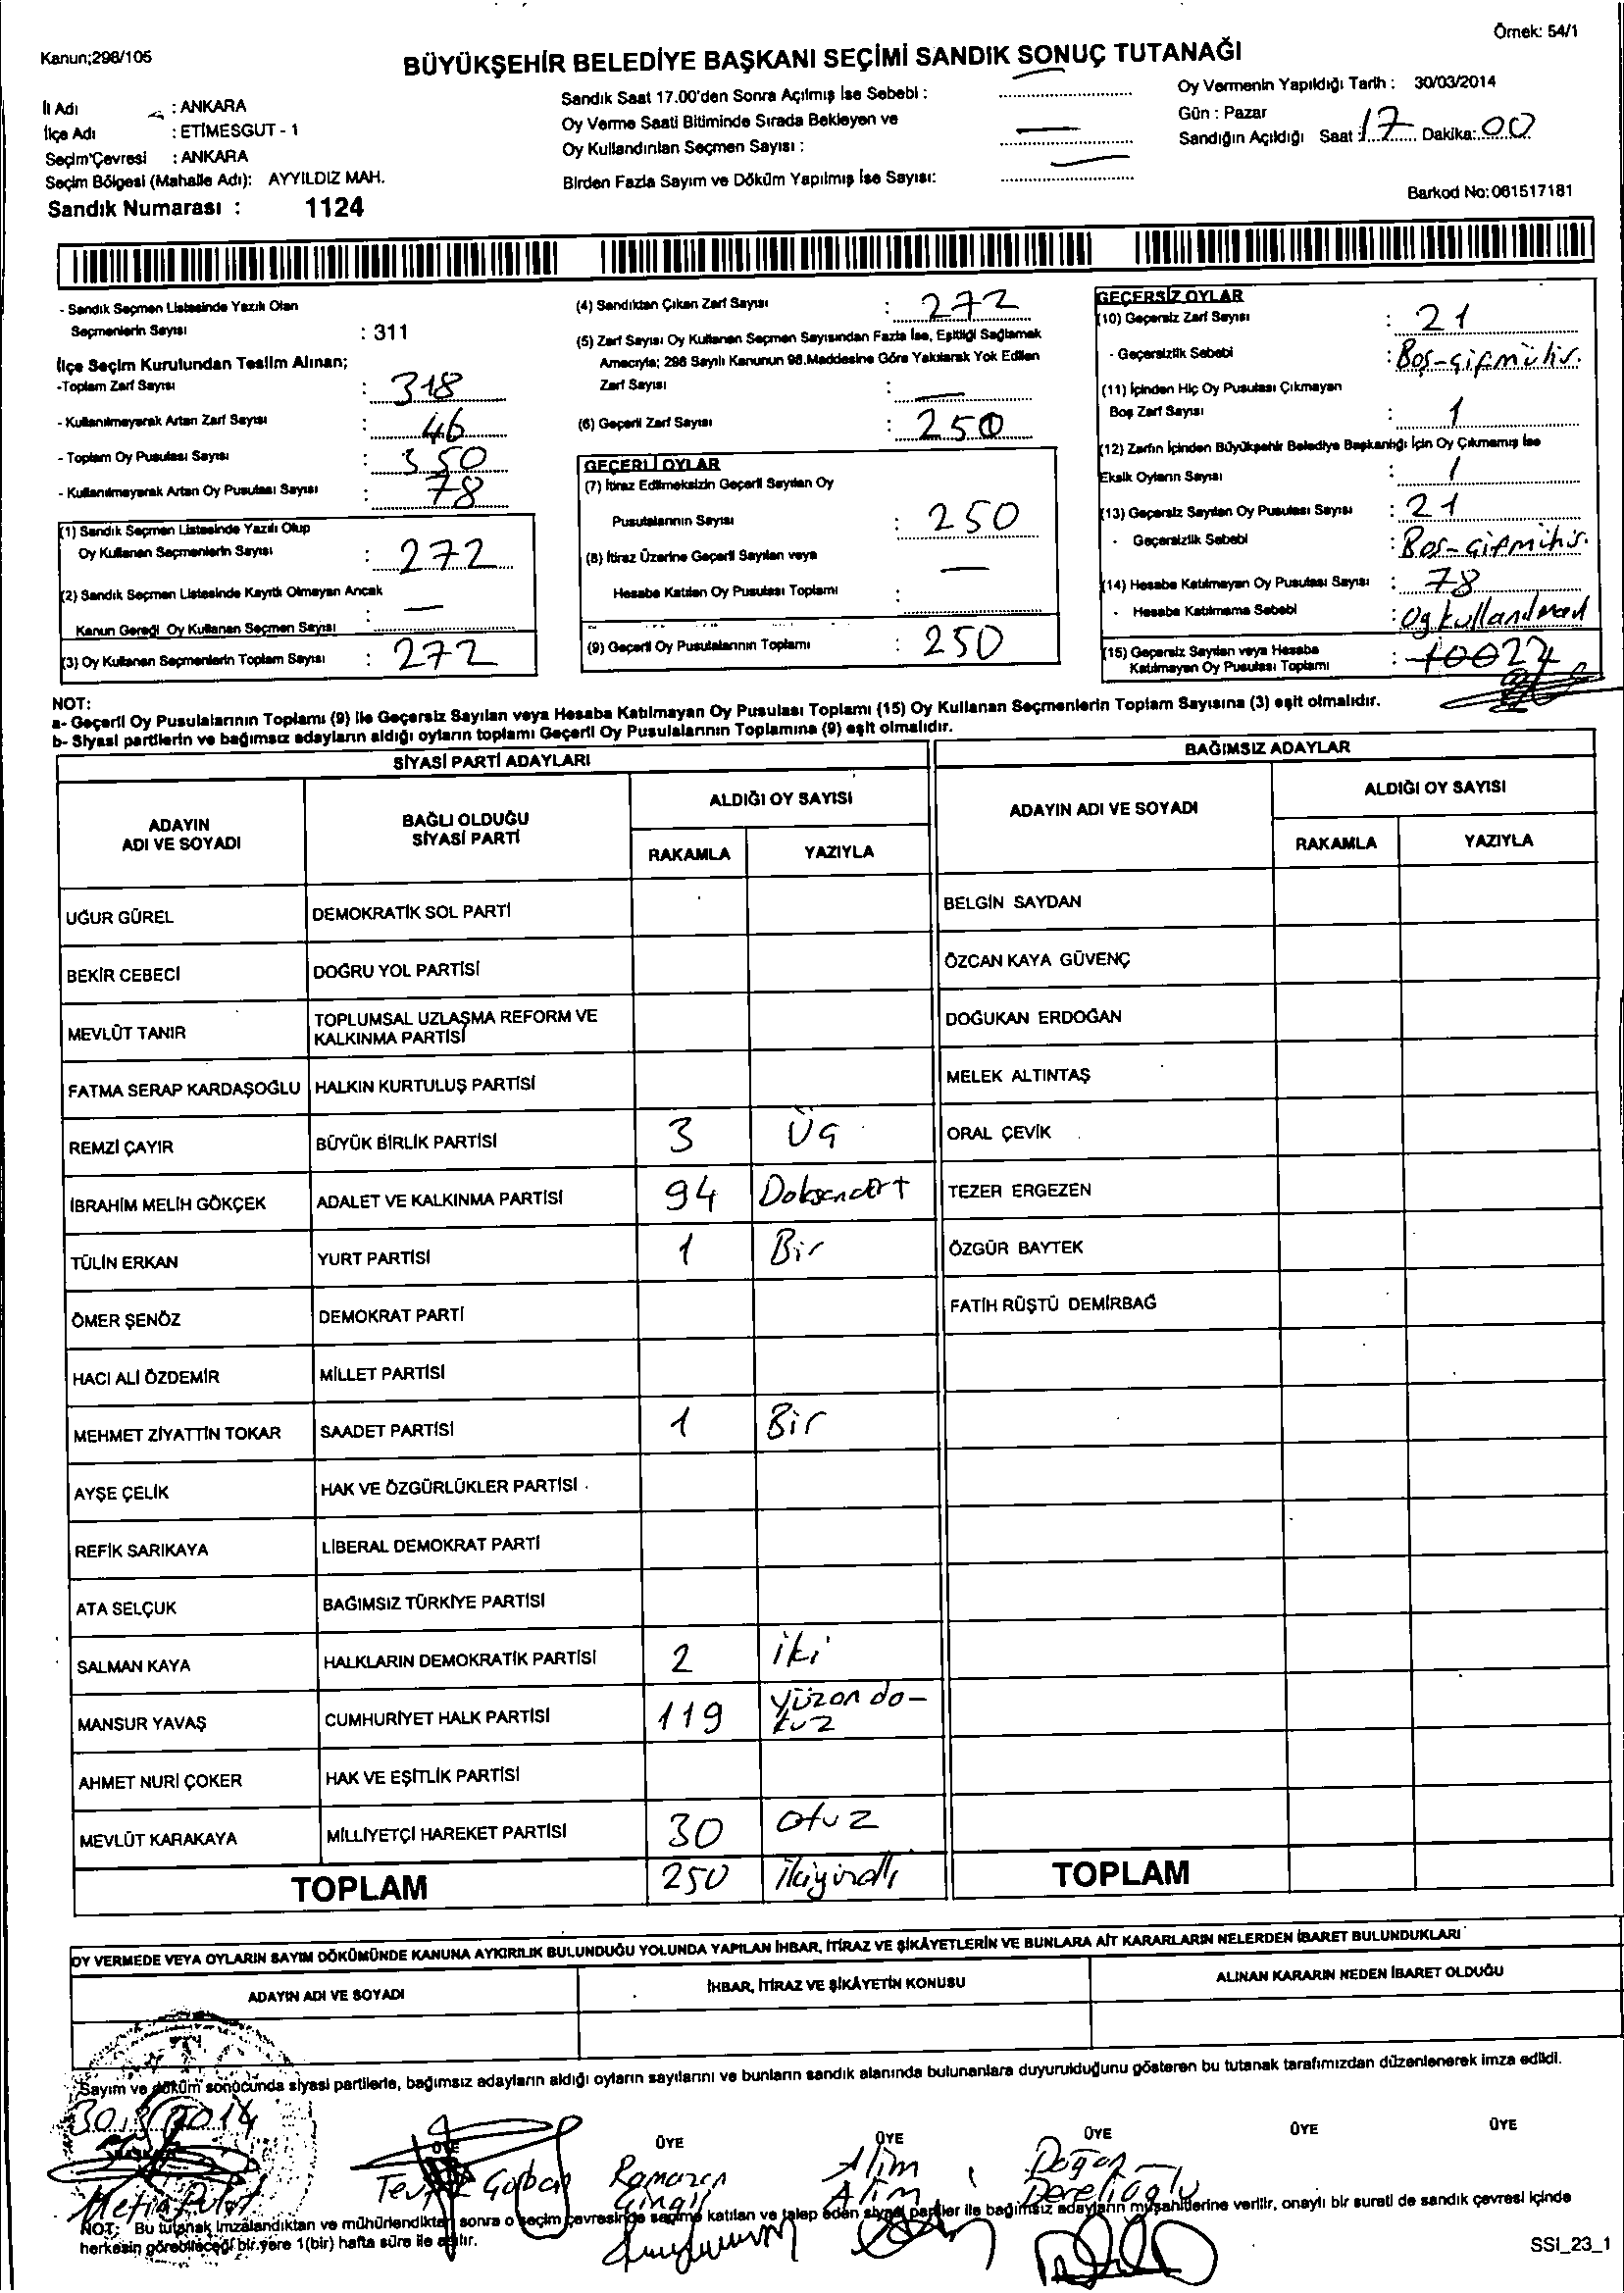 Örnek: 54/1
Kanun;298/105
BÜYÜKŞEHİR BELEDİYE BAŞKANI SEÇİMİ SANDIK SONUÇ TUTANAĞI
İl Adı : ANKARA
İlçe Adı : ETİMESGUT - 1
Seçim Çevresi : ANKARA
Seçim Bölgesi (Mahalle Adı): AYYILDIZ MAH.
Sandık Numarası : 1124
Sandık Saat 17.00'den Sonra Açılmış İse Sebebi : —
Oy Verme Saati Bitiminde Sırada Bekleyen ve
Oy Kullandırılan Seçmen Sayısı : —
Birden Fazla Sayım ve Döküm Yapılmış İse Sayısı: —
Oy Vermenin Yapıldığı Tarih : 30/03/2014
Gün : Pazar
Sandığın Açıldığı Saat : 17 Dakika: 00
Barkod No: 061517181
- Sandık Seçmen Listesinde Yazılı Olan
Seçmenlerin Sayısı : 311
İlçe Seçim Kurulundan Teslim Alınan;
-Toplam Zarf Sayısı : 318
- Kullanılmayarak Artan Zarf Sayısı : 46
- Toplam Oy Pusulası Sayısı : 350
- Kullanılmayarak Artan Oy Pusulası Sayısı : 78
(1) Sandık Seçmen Listesinde Yazılı Olup
Oy Kullanan Seçmenlerin Sayısı : 272
(2) Sandık Seçmen Listesinde Kayıtlı Olmayan Ancak
Kanun Gereği Oy Kullanan Seçmen Sayısı : —
(3) Oy Kullanan Seçmenlerin Toplam Sayısı : 272
(4) Sandıktan Çıkan Zarf Sayısı : 272
(5) Zarf Sayısı Oy Kullanan Seçmen Sayısından Fazla İse, Eşitliği Sağlamak
Amacıyla; 298 Sayılı Kanunun 98.Maddesine Göre Yakılarak Yok Edilen
Zarf Sayısı : —
(6) Geçerli Zarf Sayısı : 250
GEÇERLİ OYLAR
(7) İtiraz Edilmeksizin Geçerli Sayılan Oy
Pusulalarının Sayısı : 250
(8) İtiraz Üzerine Geçerli Sayılan veya
Hesaba Katılan Oy Pusulası Toplamı : —
(9) Geçerli Oy Pusulalarının Toplamı : 250
GEÇERSİZ OYLAR
(10) Geçersiz Zarf Sayısı : 21
- Geçersizlik Sebebi : Boş-çifmühür.
(11) İçinden Hiç Oy Pusulası Çıkmayan
Boş Zarf Sayısı : 1
(12) Zarfın İçinden Büyükşehir Belediye Başkanlığı İçin Oy Çıkmamış İse
Eksik Oyların Sayısı : 1
(13) Geçersiz Sayılan Oy Pusulası Sayısı : 21
- Geçersizlik Sebebi :
(14) Hesaba Katılmayan Oy Pusulası Sayısı : 78
- Hesaba Katılmama Sebebi :
(15) Geçersiz Sayılan veya Hesaba
Katılmayan Oy Pusulası Toplamı :
NOT:
a- Geçerli Oy Pusulalarının Toplamı (9) ile Geçersiz Sayılan veya Hesaba Katılmayan Oy Pusulası Toplamı (15) Oy Kullanan Seçmenlerin Toplam Sayısına (3) eşit olmalıdır.
b- Siyasi partilerin ve bağımsız adayların aldığı oyların toplamı Geçerli Oy Pusulalarının Toplamına (9) eşit olmalıdır.
SİYASİ PARTİ ADAYLARI
ADAYIN ADI VE SOYADI BAĞLI OLDUĞU SİYASİ PARTİ ALDIĞI OY SAYISI
RAKAMLA YAZIYLA
UĞUR GÜREL DEMOKRATİK SOL PARTİ
BEKİR CEBECİ DOĞRU YOL PARTİSİ
MEVLÜT TANIR TOPLUMSAL UZLAŞMA REFORM VE KALKINMA PARTİSİ
FATMA SERAP KARDAŞOĞLU HALKIN KURTULUŞ PARTİSİ
REMZİ ÇAYIR BÜYÜK BİRLİK PARTİSİ 3 Üç
İBRAHİM MELİH GÖKÇEK ADALET VE KALKINMA PARTİSİ 94 Doksandört
TÜLİN ERKAN YURT PARTİSİ 1 Bir
ÖMER ŞENÖZ DEMOKRAT PARTİ
HACI ALİ ÖZDEMİR MİLLET PARTİSİ
MEHMET ZİYATTİN TOKAR SAADET PARTİSİ 1 Bir
AYŞE ÇELİK HAK VE ÖZGÜRLÜKLER PARTİSİ
REFİK SARIKAYA LİBERAL DEMOKRAT PARTİ
ATA SELÇUK BAĞIMSIZ TÜRKİYE PARTİSİ
SALMAN KAYA HALKLARIN DEMOKRATİK PARTİSİ 2 iki
MANSUR YAVAŞ CUMHURİYET HALK PARTİSİ 119 Yüzondo-kuz
AHMET NURİ ÇOKER HAK VE EŞİTLİK PARTİSİ
MEVLÜT KARAKAYA MİLLİYETÇİ HAREKET PARTİSİ 30 Otuz
TOPLAM 250 İkiyüzelli
BAĞIMSIZ ADAYLAR
ADAYIN ADI VE SOYADI ALDIĞI OY SAYISI
RAKAMLA YAZIYLA
BELGİN SAYDAN
ÖZCAN KAYA GÜVENÇ
DOĞUKAN ERDOĞAN
MELEK ALTINTAŞ
ORAL ÇEVİK
TEZER ERGEZEN
ÖZGÜR BAYTEK
FATİH RÜŞTÜ DEMİRBAĞ
TOPLAM
OY VERMEDE VEYA OYLARIN SAYIM DÖKÜMÜNDE KANUNA AYKIRILIK BULUNDUĞU YOLUNDA YAPILAN İHBAR, İTİRAZ VE ŞİKÂYETLERİN VE BUNLARA AİT KARARLARIN NELERDEN İBARET BULUNDUKLARI
ADAYIN ADI VE SOYADI İHBAR, İTİRAZ VE ŞİKÂYETİN KONUSU ALINAN KARARIN NEDEN İBARET OLDUĞU
Sayım ve döküm sonucunda siyasi partilerle, bağımsız adayların aldığı oyların sayılarını ve bunların sandık alanında bulunanlara duyurulduğunu gösteren bu tutanak tarafımızdan düzenlenerek imza edildi.
30.3.2014
BAŞKAN ÜYE ÜYE ÜYE ÜYE ÜYE ÜYE
Metin Ramazan Alim Doğan
Alim Derelioğlu
NOT: Bu tutanak imzalandıktan ve mühürlendikten sonra o seçim çevresinde seçime katılan ve talep eden siyasi partiler ile bağımsız adayların müşahitlerine verilir, onaylı bir sureti de sandık çevresi içinde
herkesin görebileceği bir yere 1(bir) hafta süre ile asılır.
SSI_23_1